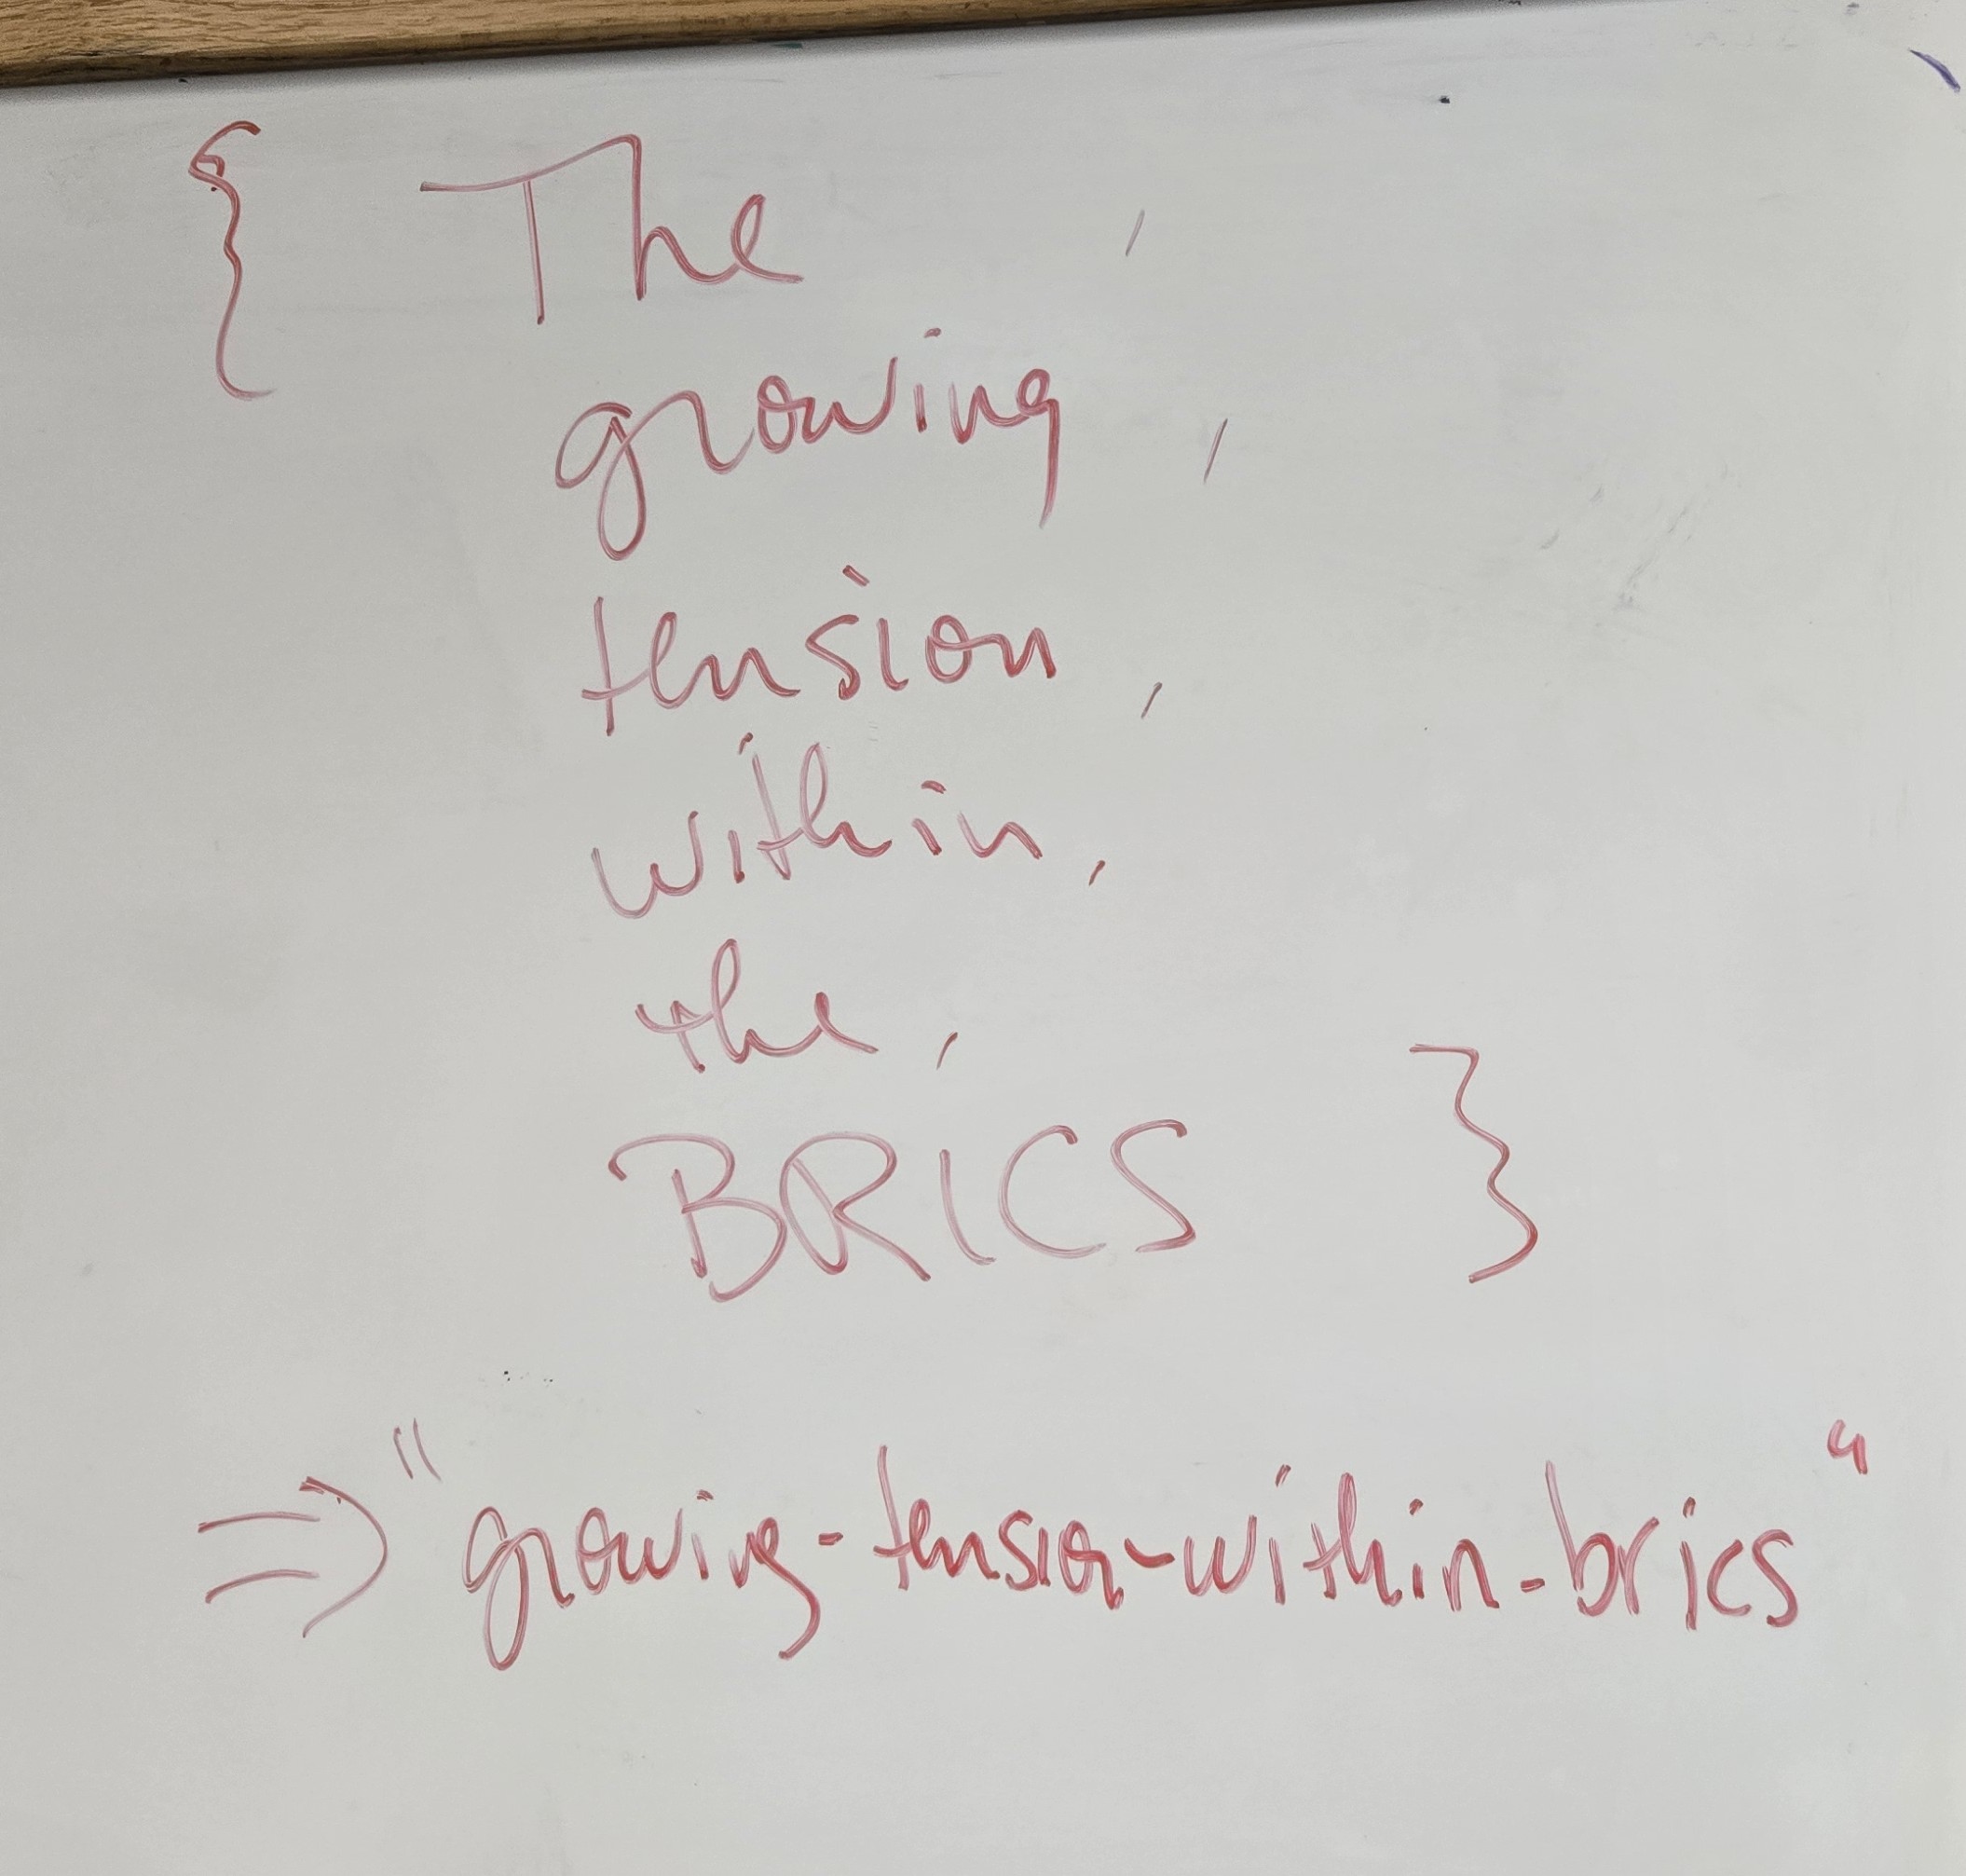 { The ,
growing ,
tension ,
within ,
the ,
BRICS }
⇒ "growing-tension-within-brics"